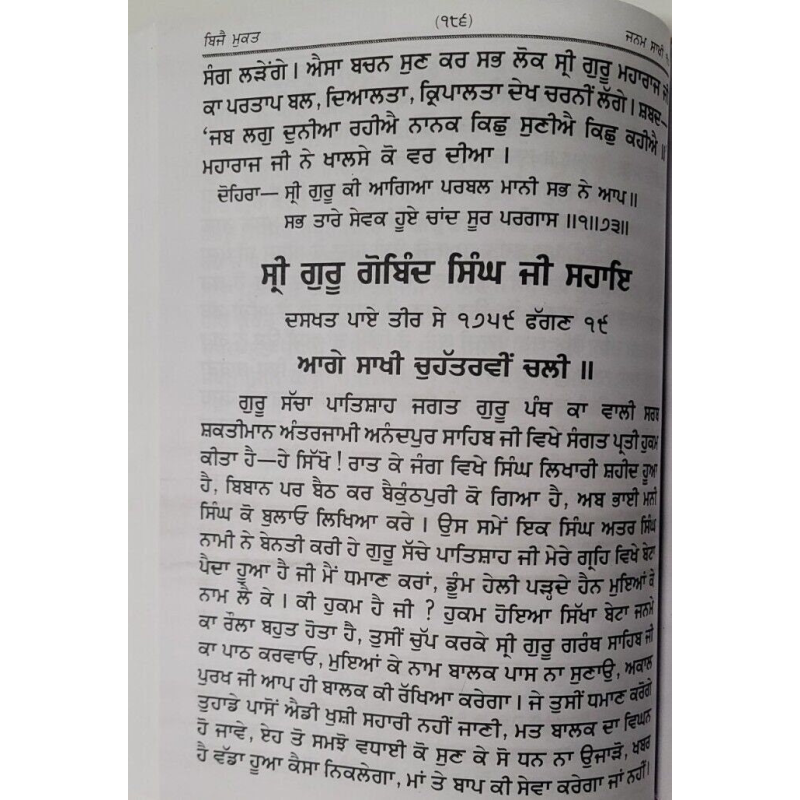 ਬਿਜੈ ਮੁਕਤ
(੧੮੬)
ਜਨਮ ਸਾਖੀ
ਸੰਗ ਲੜੇਂਗੇ। ਐਸਾ ਬਚਨ ਸੁਣ ਕਰ ਸਭ ਲੋਕ ਸ੍ਰੀ ਗੁਰੂ ਮਹਾਰਾਜ ਜੀ
ਕਾ ਪਰਤਾਪ ਬਲ, ਦਿਆਲਤਾ, ਕ੍ਰਿਪਾਲਤਾ ਦੇਖ ਚਰਨੀਂ ਲੱਗੇ। ਸ਼ਬਦ—
‘ਜਬ ਲਗੁ ਦੁਨੀਆ ਰਹੀਐ ਨਾਨਕ ਕਿਛੁ ਸੁਣੀਐ ਕਿਛੁ ਕਹੀਐ॥
ਮਹਾਰਾਜ ਜੀ ਨੇ ਖਾਲਸੇ ਕੋ ਵਰ ਦੀਆ।
ਦੋਹਿਰਾ— ਸ੍ਰੀ ਗੁਰੂ ਕੀ ਆਗਿਆ ਪਰਬਲ ਮਾਨੀ ਸਭ ਨੇ ਆਪ॥
ਸਭ ਤਾਰੇ ਸੇਵਕ ਹੂਏ ਚਾਂਦ ਸੂਰ ਪਰਗਾਸ ॥੧॥੭੩॥
ਸ੍ਰੀ ਗੁਰੂ ਗੋਬਿੰਦ ਸਿੰਘ ਜੀ ਸਹਾਇ
ਦਸਖਤ ਪਾਏ ਤੀਰ ਸੇ ੧੭੫੯ ਫੱਗਣ ੧੯
ਆਗੇ ਸਾਖੀ ਚੁਹੱਤਰਵੀਂ ਚਲੀ ॥
ਗੁਰੂ ਸੱਚਾ ਪਾਤਿਸ਼ਾਹ ਜਗਤ ਗੁਰੂ ਪੰਥ ਕਾ ਵਾਲੀ ਸਰਬ
ਸ਼ਕਤੀਮਾਨ ਅੰਤਰਜਾਮੀ ਅਨੰਦਪੁਰ ਸਾਹਿਬ ਜੀ ਵਿਖੇ ਸੰਗਤ ਪ੍ਰਤੀ ਹੁਕਮ
ਕੀਤਾ ਹੈ—ਹੇ ਸਿੱਖੋ! ਰਾਤ ਕੇ ਜੰਗ ਵਿਖੇ ਸਿੰਘ ਲਿਖਾਰੀ ਸ਼ਹੀਦ ਹੂਆ
ਹੈ, ਬਿਬਾਨ ਪਰ ਬੈਠ ਕਰ ਬੈਕੁੰਠਪੁਰੀ ਕੋ ਗਿਆ ਹੈ, ਅਬ ਭਾਈ ਮਨੀ
ਸਿੰਘ ਕੋ ਬੁਲਾਓ ਲਿਖਿਆ ਕਰੇ। ਉਸ ਸਮੇਂ ਇਕ ਸਿੰਘ ਅਤਰ ਸਿੰਘ
ਨਾਮੀ ਨੇ ਬੇਨਤੀ ਕਰੀ ਹੇ ਗੁਰੂ ਸੱਚੇ ਪਾਤਿਸ਼ਾਹ ਜੀ ਮੇਰੇ ਗ੍ਰਹਿ ਵਿਖੇ ਬੇਟਾ
ਪੈਦਾ ਹੂਆ ਹੈ ਜੀ ਮੈਂ ਧਮਾਣ ਕਰਾਂ, ਡੂੰਮ ਹੇਲੀ ਪੜ੍ਹਦੇ ਹੈਨ ਮੁਇਆਂ ਕੇ
ਨਾਮ ਲੈ ਕੇ। ਕੀ ਹੁਕਮ ਹੈ ਜੀ ? ਹੁਕਮ ਹੋਇਆ ਸਿੱਖਾ ਬੇਟਾ ਜਨਮੇ
ਕਾ ਰੌਲਾ ਬਹੁਤ ਹੋਤਾ ਹੈ, ਤੁਸੀਂ ਚੁੱਪ ਕਰਕੇ ਸ੍ਰੀ ਗੁਰੂ ਗਰੰਥ ਸਾਹਿਬ ਜੀ
ਕਾ ਪਾਠ ਕਰਵਾਓ, ਮੁਇਆਂ ਕੇ ਨਾਮ ਬਾਲਕ ਪਾਸ ਨਾ ਸੁਣਾਉ, ਅਕਾਲ
ਪੁਰਖ ਜੀ ਆਪ ਹੀ ਬਾਲਕ ਕੀ ਰੱਖਿਆ ਕਰੇਗਾ। ਜੇ ਤੁਸੀਂ ਧਮਾਣ ਕਰੋਗੇ
ਤੁਹਾਡੇ ਪਾਸੋਂ ਐਡੀ ਖੁਸ਼ੀ ਸਹਾਰੀ ਨਹੀਂ ਜਾਣੀ, ਮਤ ਬਾਲਕ ਦਾ ਵਿਘਨ
ਹੋ ਜਾਵੇ, ਏਹ ਤੋ ਸਮਝੋ ਵਧਾਈ ਕੋ ਸੁਣ ਕੇ ਸੋ ਧਨ ਨਾ ਉਜਾੜੋ, ਖਬਰ
ਹੈ ਵੱਡਾ ਹੂਆ ਕੈਸਾ ਨਿਕਲੇਗਾ, ਮਾਂ ਤੇ ਬਾਪ ਕੀ ਸੇਵਾ ਕਰੇਗਾ ਜਾਂ ਨਹੀਂ।